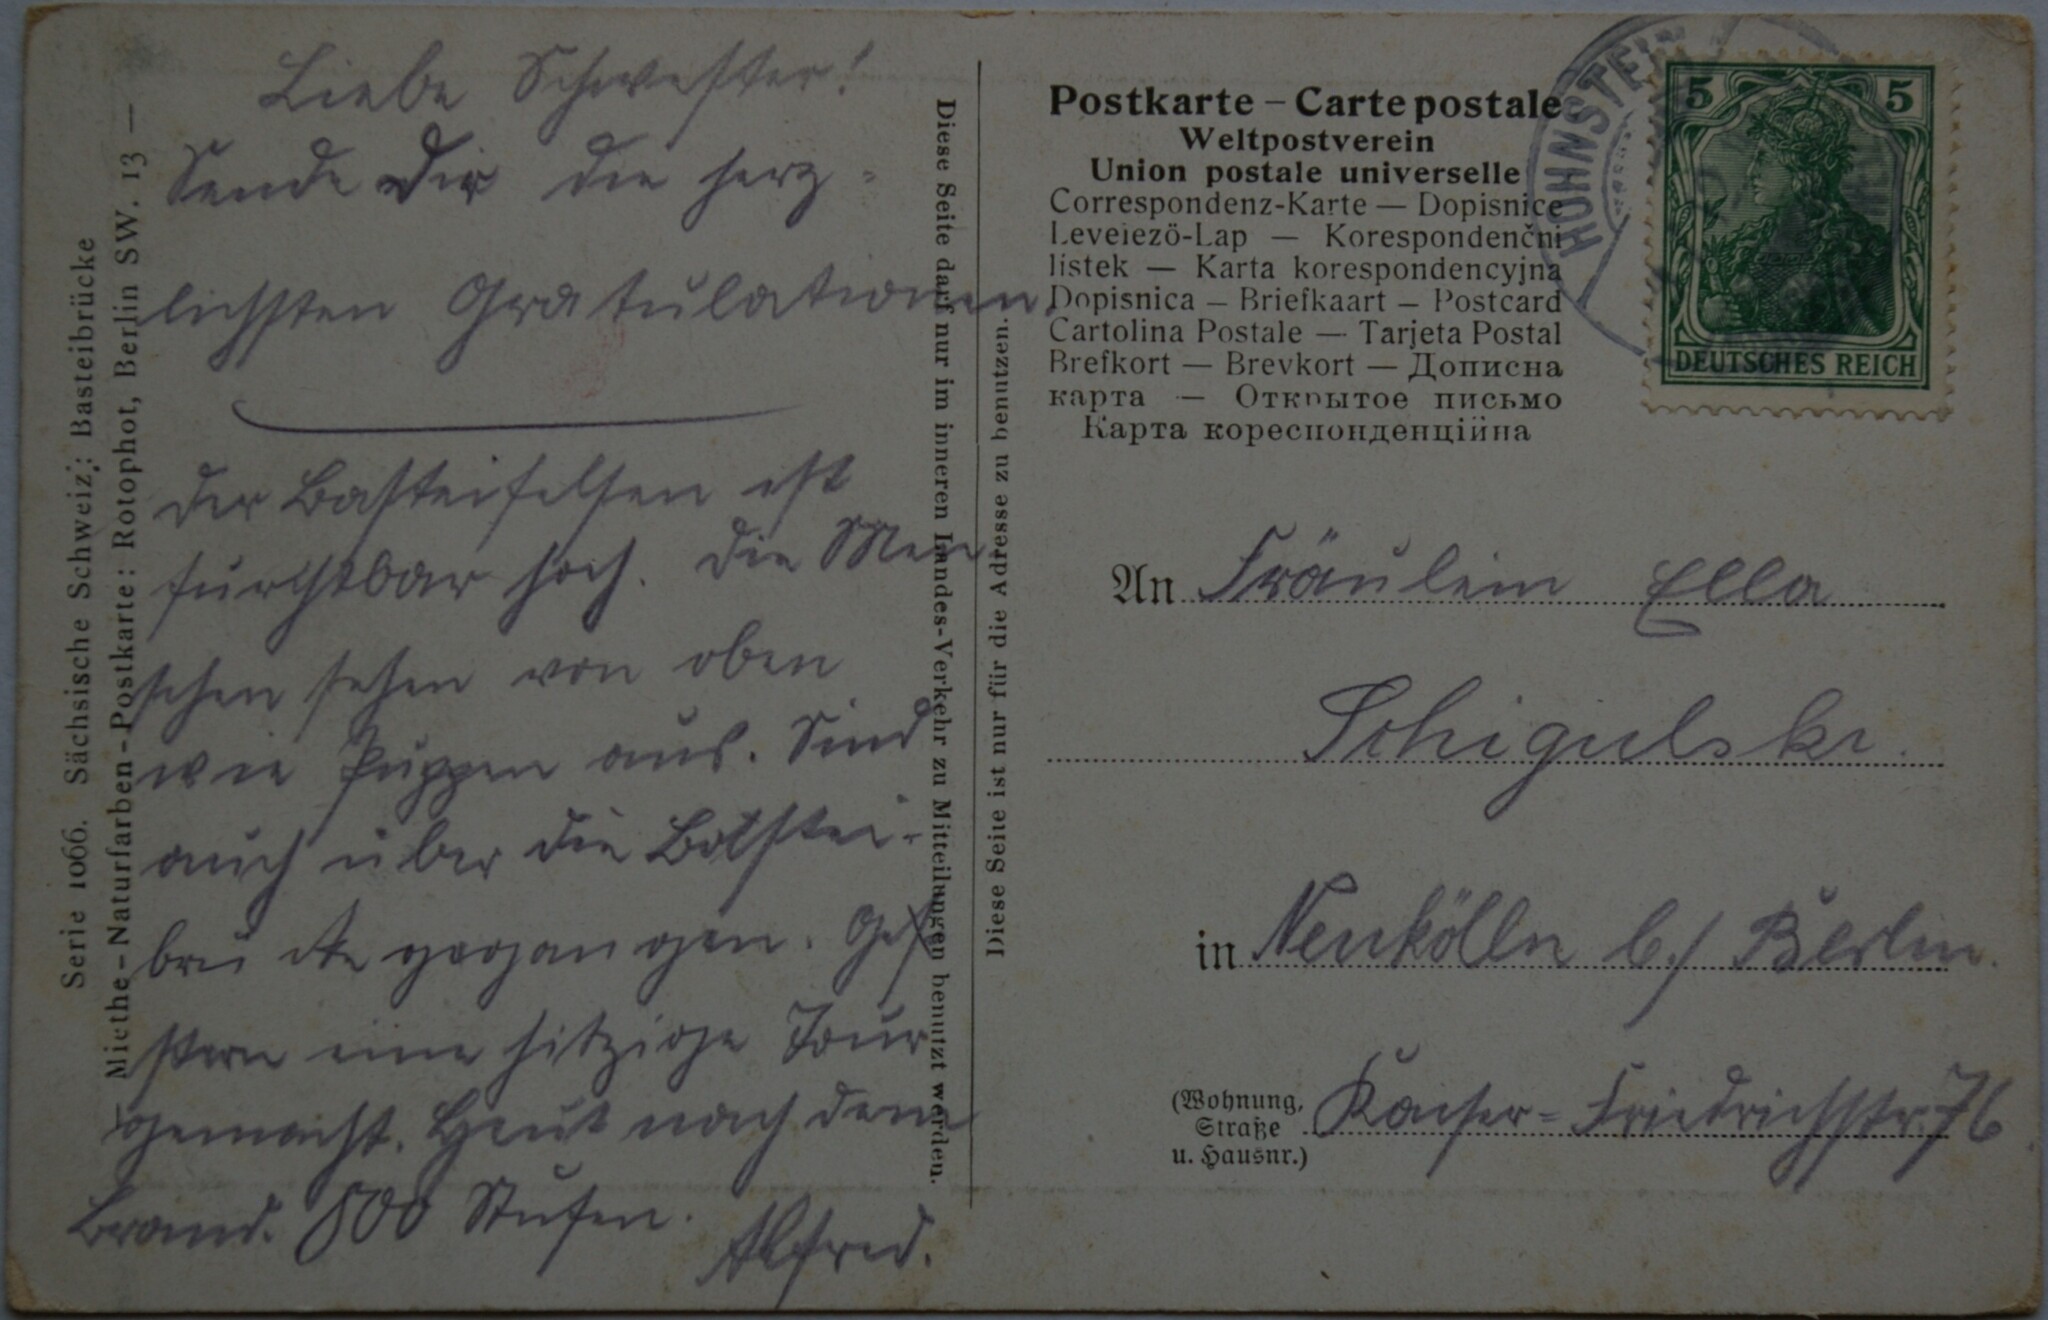 Serie 1066. Sächsische Schweiz: Basteibrücke
Miethe-Naturfarben-Postkarte: Rotophot, Berlin SW. 13 —
Liebe Schwester!
Sende Dir die herz-
lichsten Gratulationen.
Der Basteifelsen ist
furchtbar hoch. Die Men
schen sehen von oben
wie Puppen aus. Sind
auch über die Bastei-
brücke gegangen. Ge-
stern eine hitzige Tour
gemacht. Heut nach dem
Brand. 800 Stufen.
Alfred.
Diese Seite darf nur im inneren Landes-Verkehr zu Mitteilungen benutzt werden.
Diese Seite ist nur für die Adresse zu benutzen.
Postkarte – Carte postale
Weltpostverein
Union postale universelle
Correspondenz-Karte — Dopisnice
Levelező-Lap — Korespondenční
lístek — Karta korespondencyjna
Dopisnica — Briefkaart — Postcard
Cartolina Postale — Tarjeta Postal
Brefkort — Brevkort — Дописна
карта — Открытое письмо
Карта кореспонденційна
HOHNSTEIN
5 5
DEUTSCHES REICH
An Fräulein Ella
Schigulski.
in Neukölln b./ Berlin.
(Wohnung, Straße u. Hausnr.) Kaiser-Friedrichstr. 76